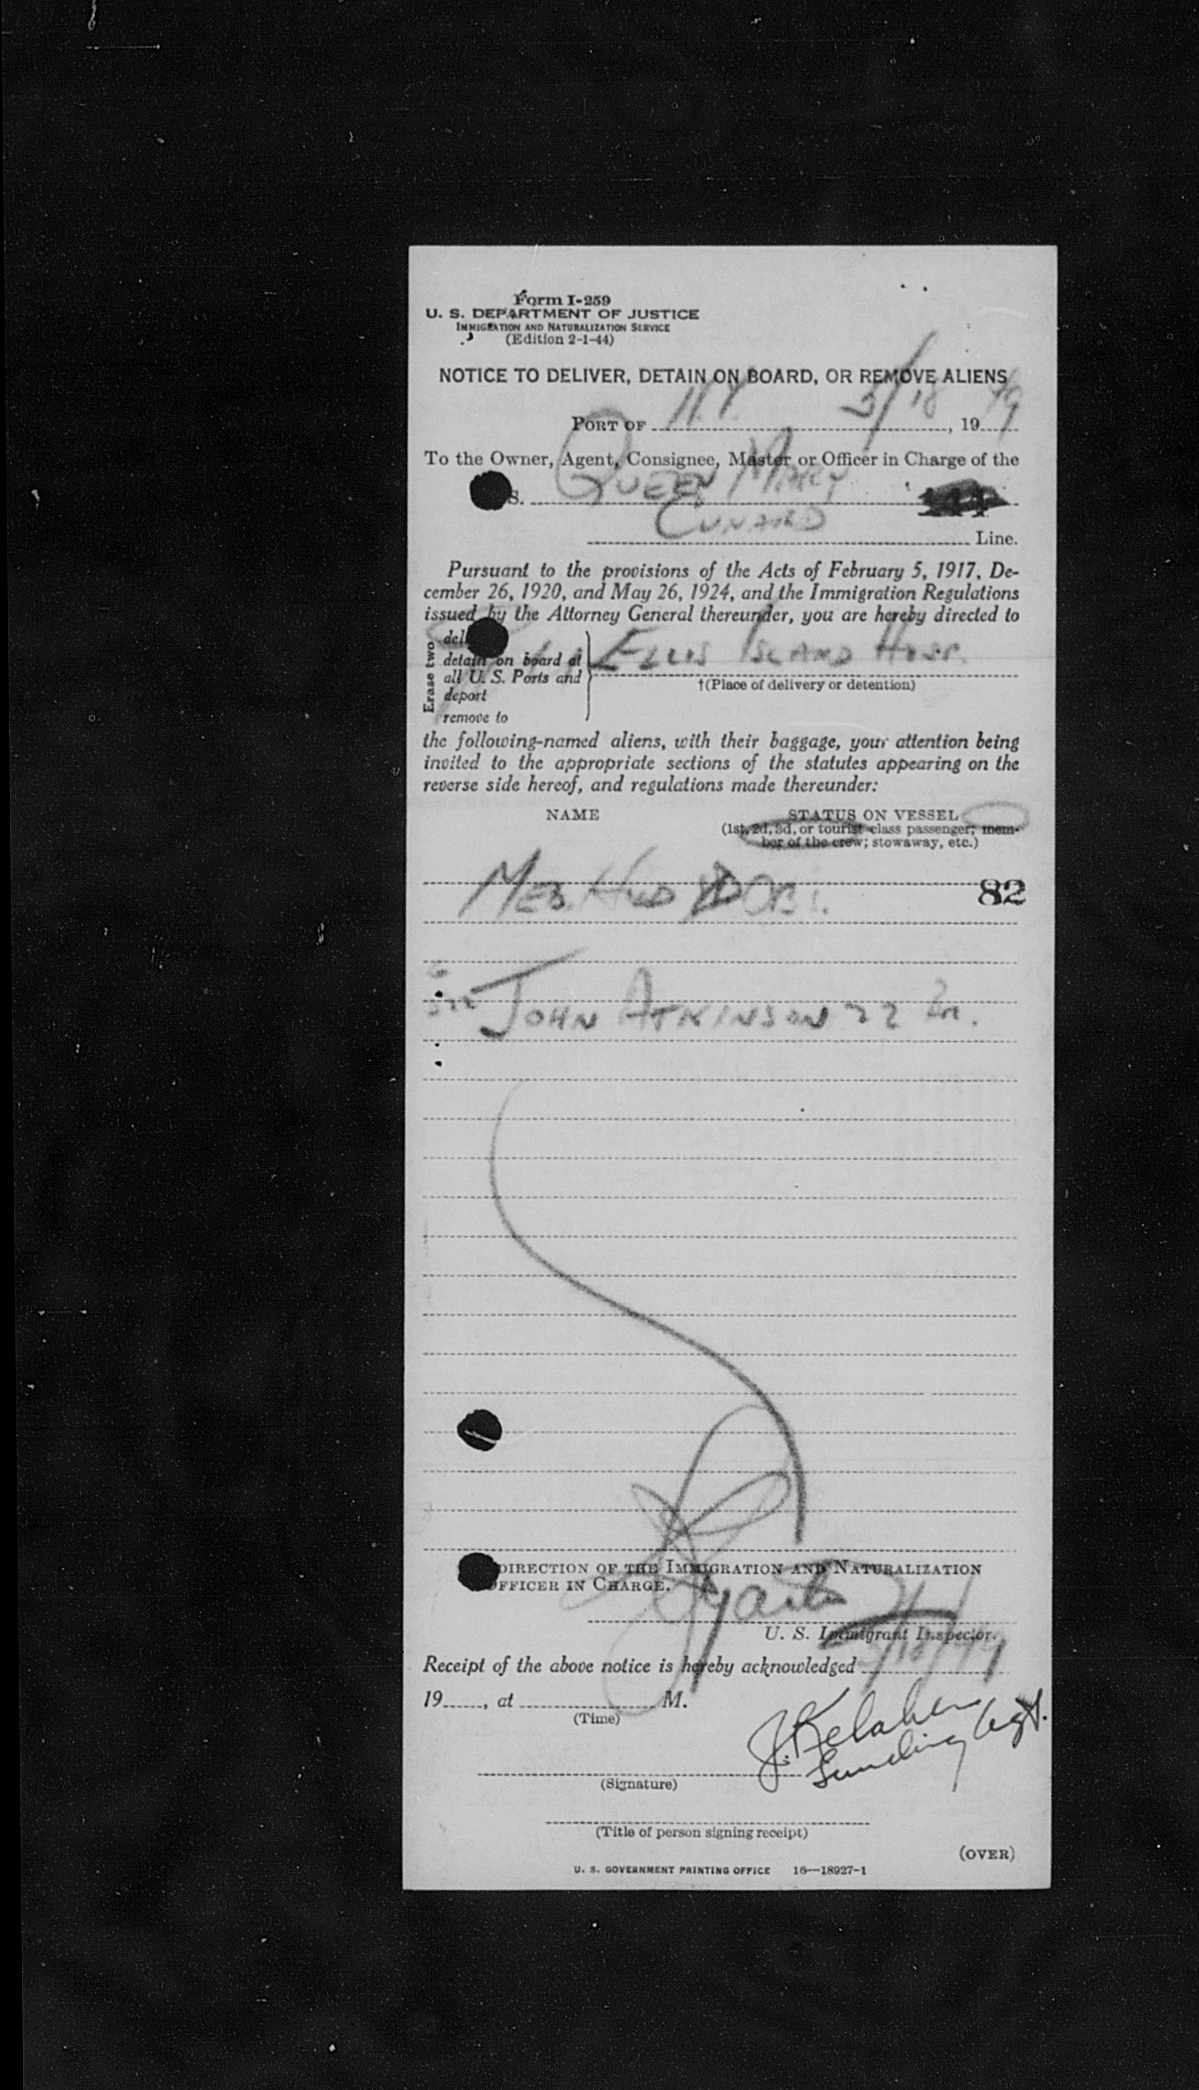 Form I-259
U. S. DEPARTMENT OF JUSTICE
IMMIGRATION AND NATURALIZATION SERVICE
(Edition 2-1-44)
NOTICE TO DELIVER, DETAIN ON BOARD, OR REMOVE ALIENS
PORT OF N.Y. 5/18, 1949
To the Owner, Agent, Consignee, Master or Officer in Charge of the
S. QUEEN MARY
CUNARD Line.
Pursuant to the provisions of the Acts of February 5, 1917, De-
cember 26, 1920, and May 26, 1924, and the Immigration Regulations
issued by the Attorney General thereunder, you are hereby directed to
Erase two
detain on board at ELLIS ISLAND HOSP.
all U. S. Ports and †(Place of delivery or detention)
deport
remove to
the following-named aliens, with their baggage, your attention being
invited to the appropriate sections of the statutes appearing on the
reverse side hereof, and regulations made thereunder:
NAME STATUS ON VESSEL
(1st, 2d, 3d, or tourist-class passenger; mem-
ber of the crew; stowaway, etc.)
MED. HLD 82
JOHN ATKINSON 22
DIRECTION OF THE IMMIGRATION AND NATURALIZATION
OFFICER IN CHARGE.
U. S. Immigrant Inspector.
Receipt of the above notice is hereby acknowledged 5/18/49
19, at M.
(Time)
J. Kelaher
Landing Agt.
(Signature)
(Title of person signing receipt)
(OVER)
U. S. GOVERNMENT PRINTING OFFICE 16—18927-1